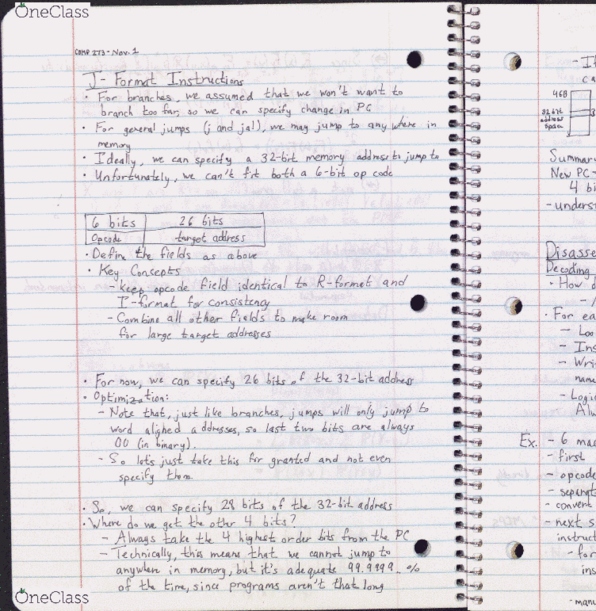 OneClass
COMP 273 - Nov. 1
J - Format Instructions
• For branches, we assumed that we won't want to
branch too far, so we can specify change in PC
• For general jumps (j and jal), we may jump to anywhere in
memory
• Ideally, we can specify a 32-bit memory address to jump to
• Unfortunately, we can't fit both a 6-bit op code
6 bits 26 bits
Opcode target address
• Define the fields as above
• Key Concepts
- keep opcode field identical to R-format and
I-format for consistency
- Combine all other fields to make room
for large target addresses
• For now, we can specify 26 bits of the 32-bit address
• Optimization:
- Note that, just like branches, jumps will only jump to
word aligned addresses, so last two bits are always
00 (in binary).
- So lets just take this for granted and not even
specify them.
• So, we can specify 28 bits of the 32-bit address
• Where do we get the other 4 bits?
- Always take the 4 highest order bits from the PC
- Technically, this means that we cannot jump to
anywhere in memory, but it's adequate 99.9999..%
of the time, since programs aren't that long
OneClass
- It
ca
4GB
32 bit
address
space
Summar
New PC
4 bi
- unders
Disasse
Decoding
• How d
• For ea
- Loo
- Ins
- Wri
name
- Logi
Alw
Ex. - 6 mac
- first
- opcode
- separat
- convert
- next s
instruct
- for
ins
- manu